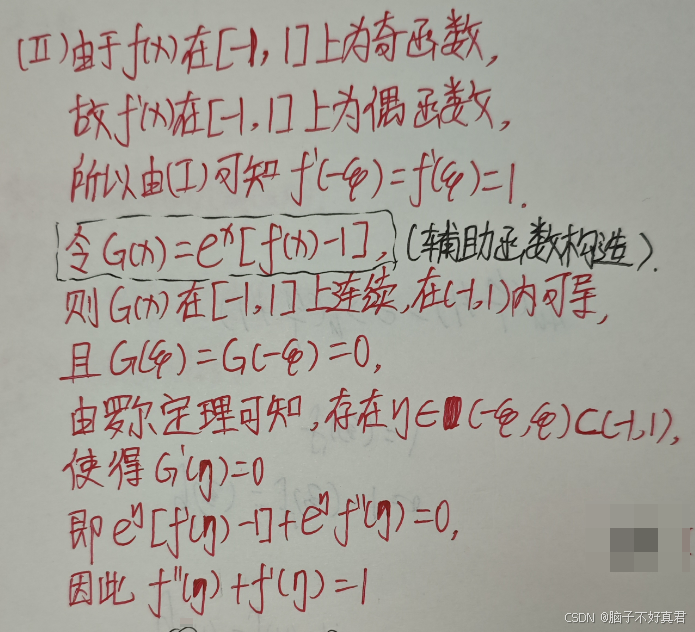 (II)由于f(x)在[-1,1]上为奇函数,
故f'(x)在[-1,1]上为偶函数,
所以由(I)可知 f'(-ξ)=f'(ξ)=1.
令G(x)=e^x[f'(x)-1], (辅助函数构造).
则G(x)在[-1,1]上连续,在(-1,1)内可导,
且G(ξ)=G(-ξ)=0,
由罗尔定理可知,存在η∈(-ξ,ξ)⊂(-1,1),
使得G'(η)=0
即e^η[f'(η)-1]+e^η f''(η)=0,
因此 f''(η)+f'(η)=1
CSDN @脑子不好真君